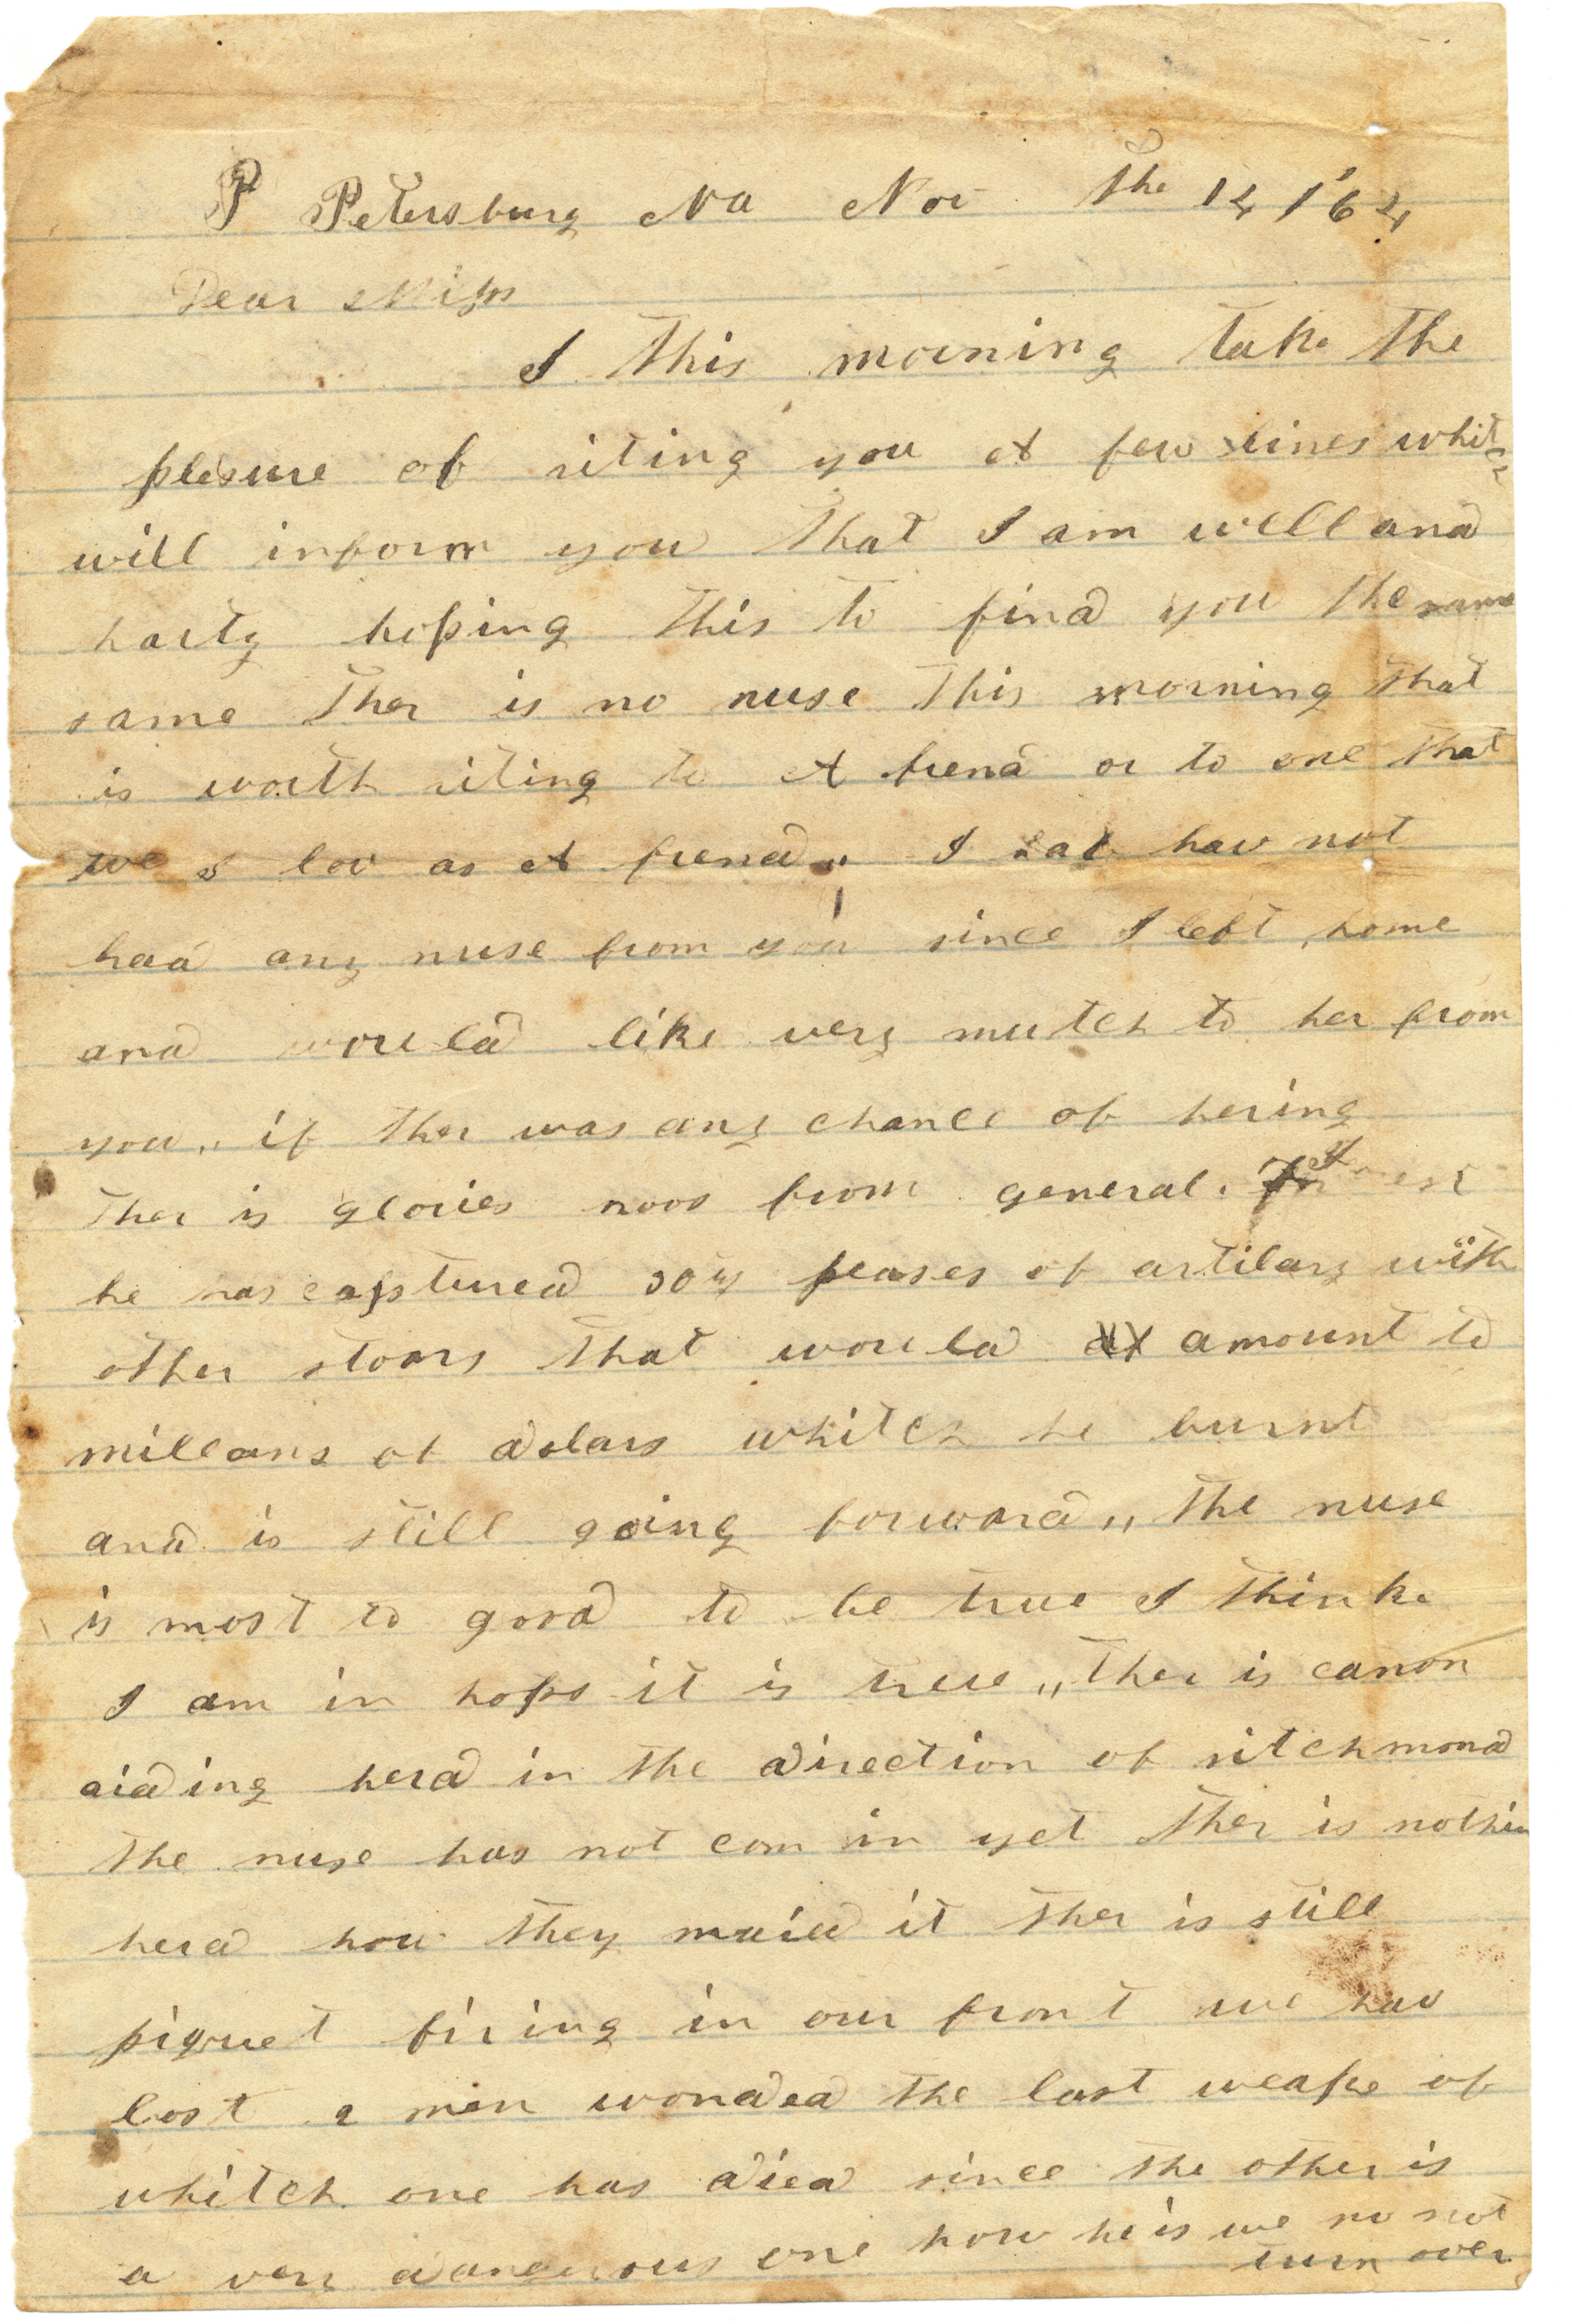 P Petersburg Va Nov The 14 1/64
Dear Miss
I This morning take the
plesure of riting you A few lines whitch
will inform you That I am well and
harty hoping This to find you the same
same Ther is no nuse this morning that
is worth riting to A frend or to one that
we I lov as A frend,, I hav not
had any nuse from you since I left home
and would like very mutch to her from
you,, if ther was any chance of hering
Ther is glories noos from general
he has captured peases of artilary with
other stoars that would amount to
millans of dolars whitch he burnt
and is still going forward,, the nuse
is most to good to be true I think
I am in hops it is true,, ther is canon
aiding herd in the direction of ritchmond
the nuse has not com in yet ther is nothin
herd how they maid it ther is still
piquet firing in our front we hav
lost 2 men wonded the last weake of
whitch one has died since the other is
a very dangerous one how he is we no not
turn over